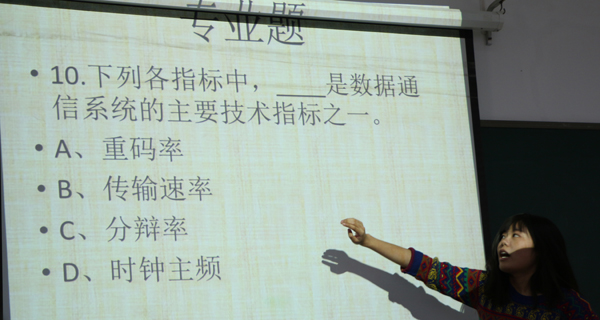 专业题
10.下列各指标中，____是数据通
信系统的主要技术指标之一。
A、重码率
B、传输速率
C、分辩率
D、时钟主频